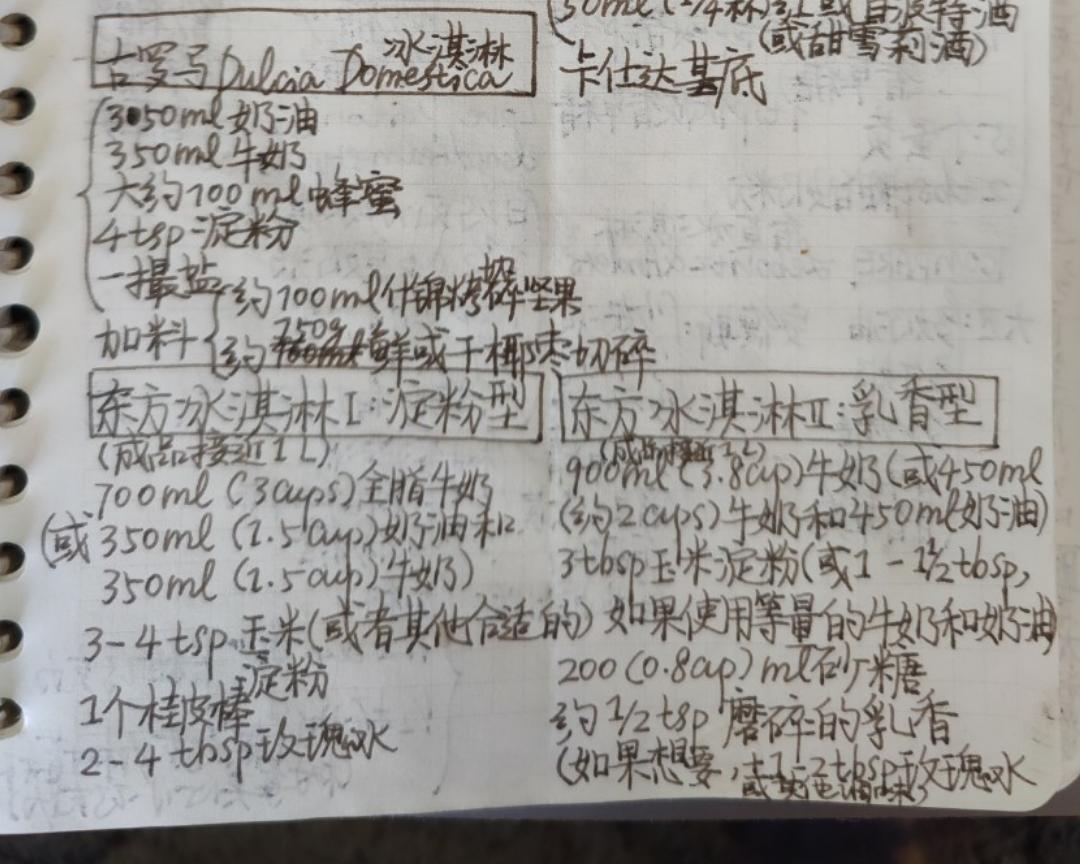 50ml(1/4杯)红或白波特酒
(或甜雪莉酒)
卡仕达基底
冰淇淋
古罗马 Dulcia Domestica
3050ml奶油
350ml牛奶
大约100ml蜂蜜
4tsp淀粉
一撮盐
加料
约100ml什锦烤碎坚果
约 150g 鲜或干椰枣切碎
东方冰淇淋I:淀粉型
(成品接近1L)
700ml(3cups)全脂牛奶
(或350ml(1.5cup)奶油和
350ml(1.5cup)牛奶)
3-4tsp玉米(或者其他合适的)
淀粉
1个桂皮棒
2-4tbsp玫瑰水
东方冰淇淋II:乳香型
(成品接近1L)
900ml(3.8cup)牛奶(或450ml
(约2cups)牛奶和450ml奶油)
3tbsp玉米淀粉(或1-1½tbsp,
如果使用等量的牛奶和奶油)
200(0.8cup)ml砂糖
约1/2tsp磨碎的乳香
(如果想要,+1-2tbsp玫瑰水